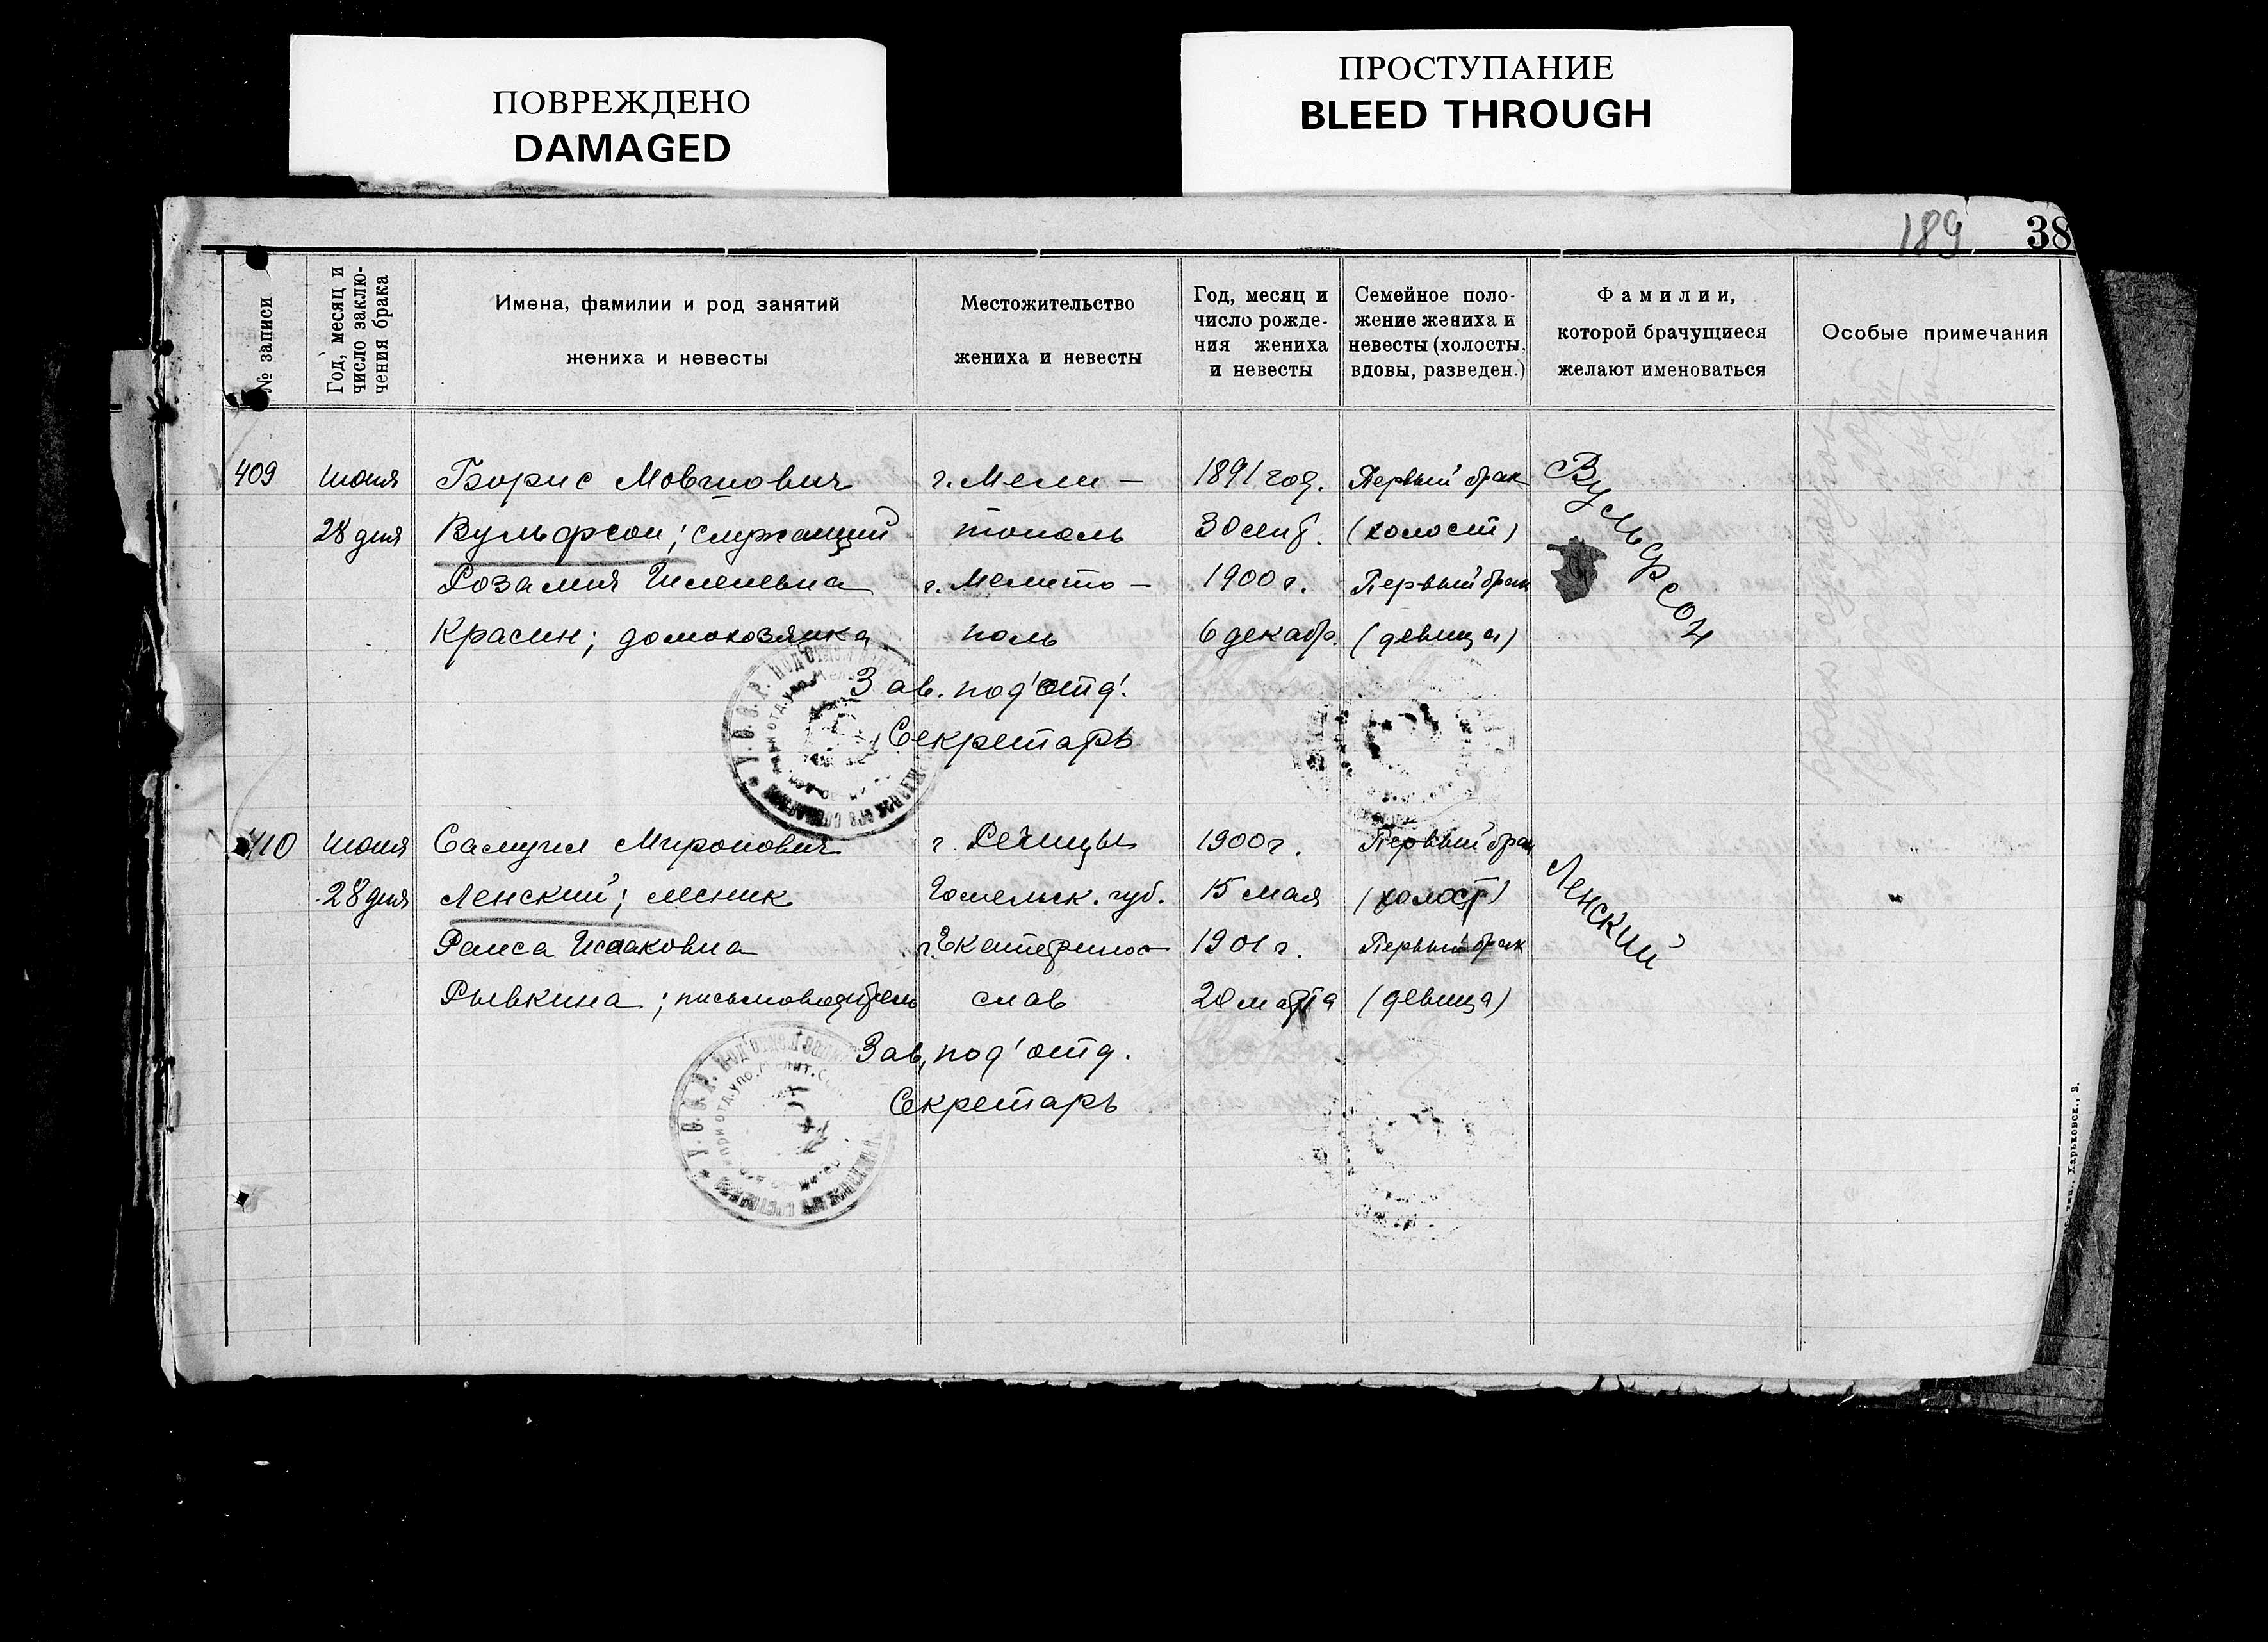 ПОВРЕЖДЕНО
DAMAGED
ПРОСТУПАНИЕ
BLEED THROUGH
189
38
№ записи
Год, месяц и число заклю-чения брака
Имена, фамилии и род занятий
жениха и невесты
Местожительство
жениха и невесты
Год, месяц и
число рожде-
ния жениха
и невесты
Семейное поло-
жение жениха и
невесты (холосты,
вдовы, разведен.)
Фамилии,
которой брачущиеся
желают именоваться
Особые примечания
409 Июня Борис Мовшович г. Мели- 1891 год. Первый брак Вульфсон
28 дня Вульфсон; служащий тополь 30 сент. (холост)
Розалия г. Мелито- 1900 г. Первый брак
Красин; домохозяйка поль 6 декабр. (девица)
Зав. под'отд.
Секретарь
410 Июня Самуил Миронович г. Речицы 1900 г. Первый брак Ленский
28 дня Ленский; Гомельск. губ. 15 мая (холост)
Раиса Исааковна г. Екатерино- 1901 г. Первый брак
Рывкина; письмоводитель слав 20 марта (девица)
Зав. под'отд.
Секретарь
У.С.С.Р.
тип., Харьковск., 3.